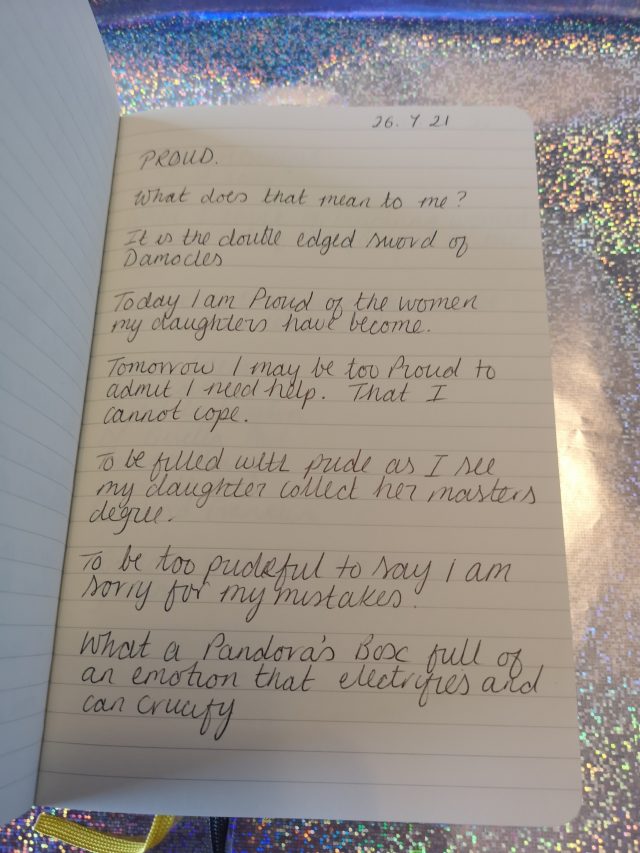 26. 7 21
PROUD.
What does that mean to me?
It is the double edged sword of
Damocles
Today I am Proud of the women
my daughters have become.
Tomorrow I may be too Proud to
admit I need help. That I
cannot cope.
To be filled with pride as I see
my daughter collect her masters
degree.
To be too prideful to say I am
sorry for my mistakes.
What a Pandora's Box full of
an emotion that electrifies and
can crucify